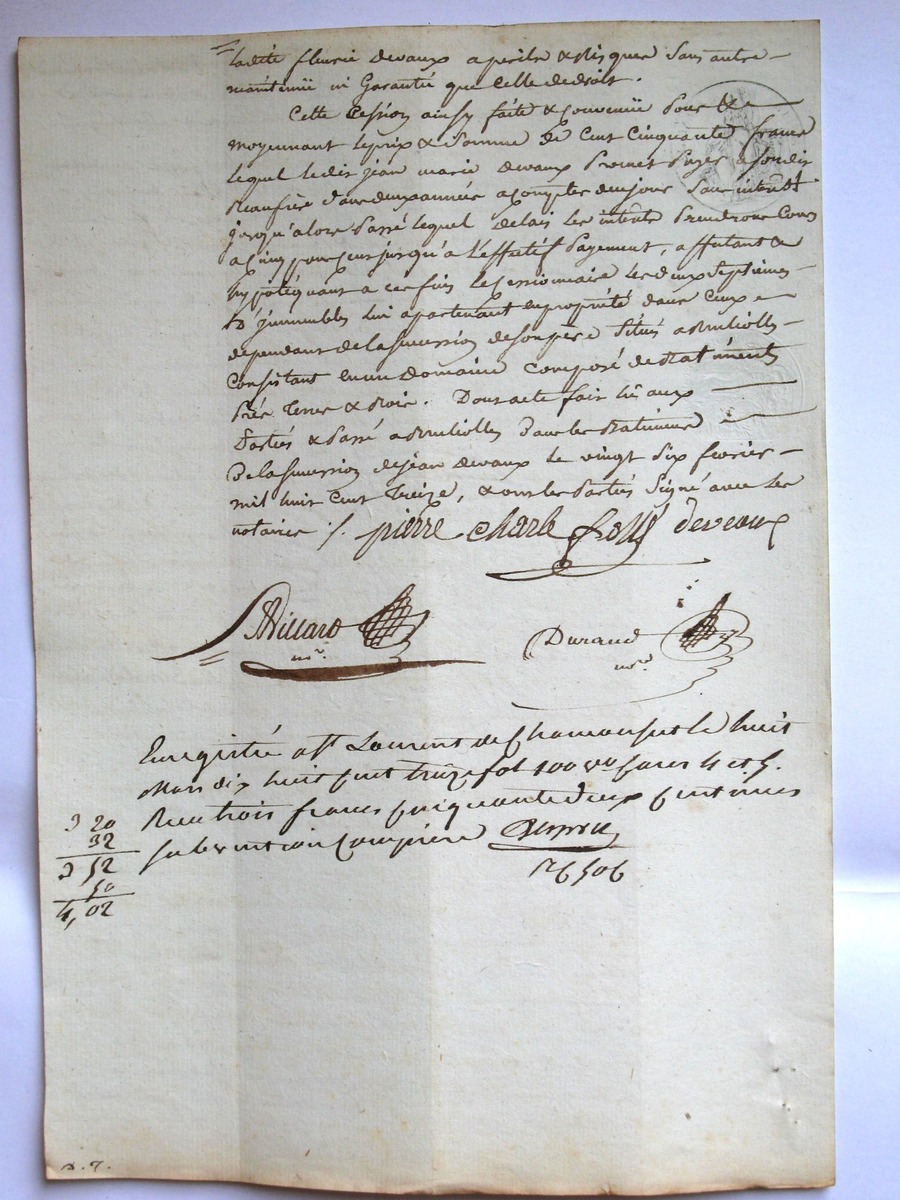 ladite fleurie devaux a perils & Risques sans autre
maintenüe ni Garantié que Celle de droit.
Cette Cession ainsy faite & Convenüe Pour &
moyennant le prix & Somme de Cent Cinquante francs
lequel ledit jean marie devaux Promet Payer a sondit
Beaufrère dans deux années a Compter de ce jour Sans intérêt
jusqu'alors Passé lequel delais les intérêts Prendrons Cours
a Cinq pour Cent jusqu'a l'Effectif Payement, affectant &
hypotéquant a ces fins le Cessionnaire les deux Septiemes
d'jmmeubles lui apartenant en propriété dans Ceux
dependant de la Succession de son père Situés a
Consistant en un Domaine Composé de Batiments
Prés Terres & Bois. Dont acte fait lû aux
Partiés & Passé a dans les Batiments
de la Succession de jean devaux le vingt Six fevrier
mil huit Cent Treize, & ont les Partiés Signé avec les
notaires ·/. pierre Charle deveaux
Billard
nore
Durand
nore
Enregistré a St Laurent de Chamousset le huit
Mars dix huit cent treize fol 100 vo cases 4 et 5.
Recu trois francs cinquante deux centimes
subvention Comprise
3 20
32
3 52
50
4,02
76506